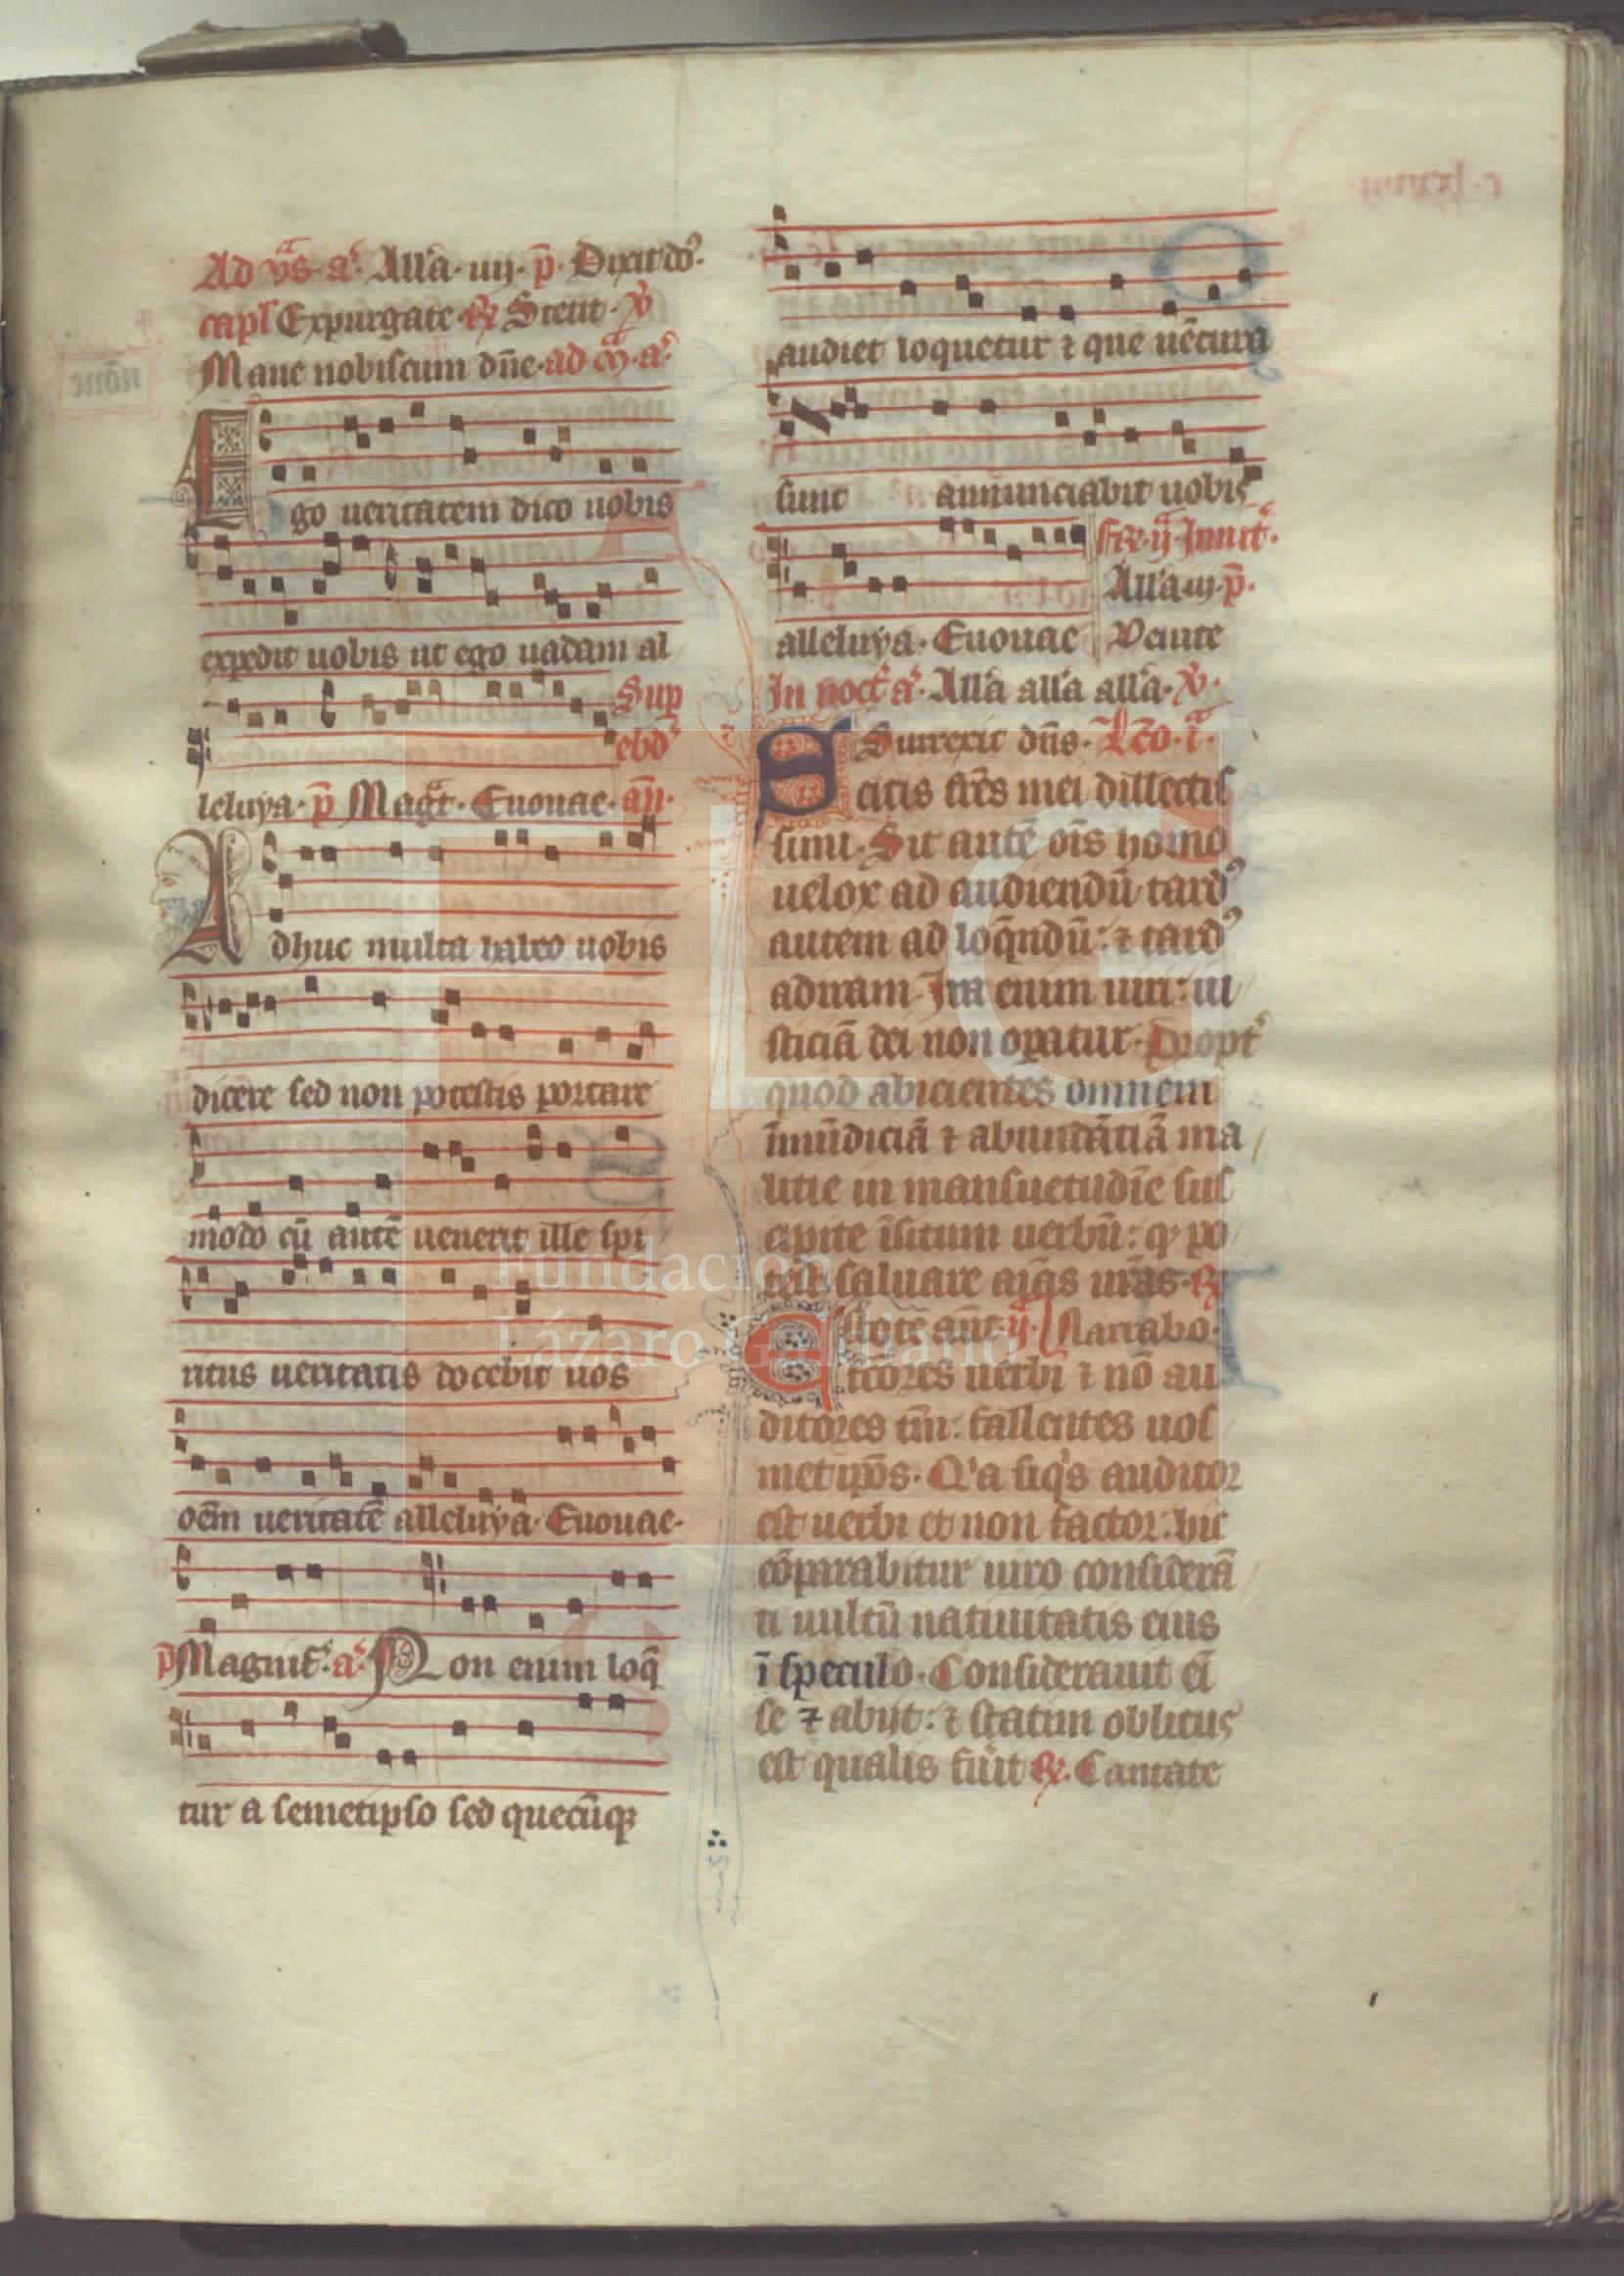 Ad vs̄. a. All'a. iiij. p̄. Dixit do.
capl' Expurgate. R/ Stetit. V
Mane nobiscum dn̄e. ad m. a.
Ego ueritatem dico uobis
expedit uobis ut ego uadam al
Sup
ebd
leluya. p̄ Magt. Euouae. an̄.
Adhuc multa habeo uobis
dicere sed non potestis portare
modo cū autē uenerit ille spi
ritus ueritatis docebit uos
oēm ueritatē alleluya. Euouae.
p̄ Magnif. a. Non enim loq̄
tur a semetipso sed quecūq;
audiet loquetur ⁊ que uētura
sunt annunciabit uobis
fer. ij. Inuit.
All'a. iij. p̄.
alleluya. Euouae Venite
In noct. a. All'a all'a all'a. V.
Surrexit dn̄s. Lc̄o. i.
Scitis frēs mei dillectis
simi. Sit autē oīs homo
uelox ad audiendū tardꝰ
autem ad loq̄ndū: ⁊ tardꝰ
ad iram. Ira enim uiri: iu
sticiā dei non opatur. Propt'
quod abicientes omnem
īmūdiciā ⁊ abundātiā ma
litie in mansuetudīe sus
cipite īsitum uerbū: q po
test saluare aīas urās. R/
Estote aūt. ij. Narrabo.
ctores uerbi ⁊ nō au
ditores tm̄: fallentes uos
metipōs. Q'a siq's auditor
est uerbi et non factor: hic
cōparabitur uiro considerā
ti uultū natiuitatis eius
ī speculo. Considerauit eī
se ⁊ abijt: ⁊ statim oblitus
est qualis fuit R/. Cantate
Fundación
Lázaro Galdiano
FLG